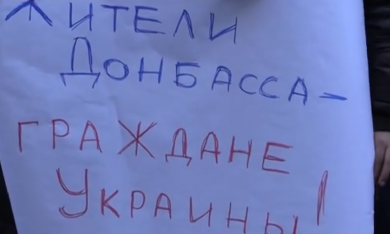 ЖИТЕЛИ
ДОНБАССА–
ГРАЖДАНЕ
УКРАИНЫ!